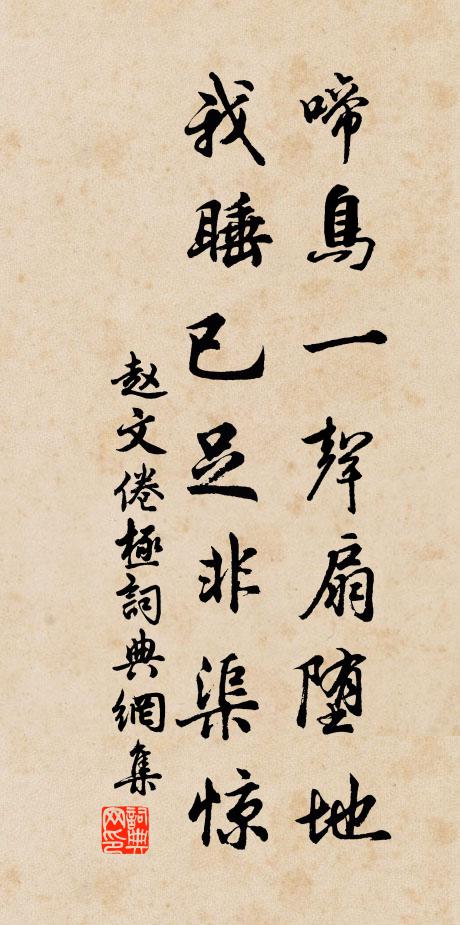 啼鳥一聲扇堕地
我睡已足非渠惊
赵文倦極詞典網集
詞典網印